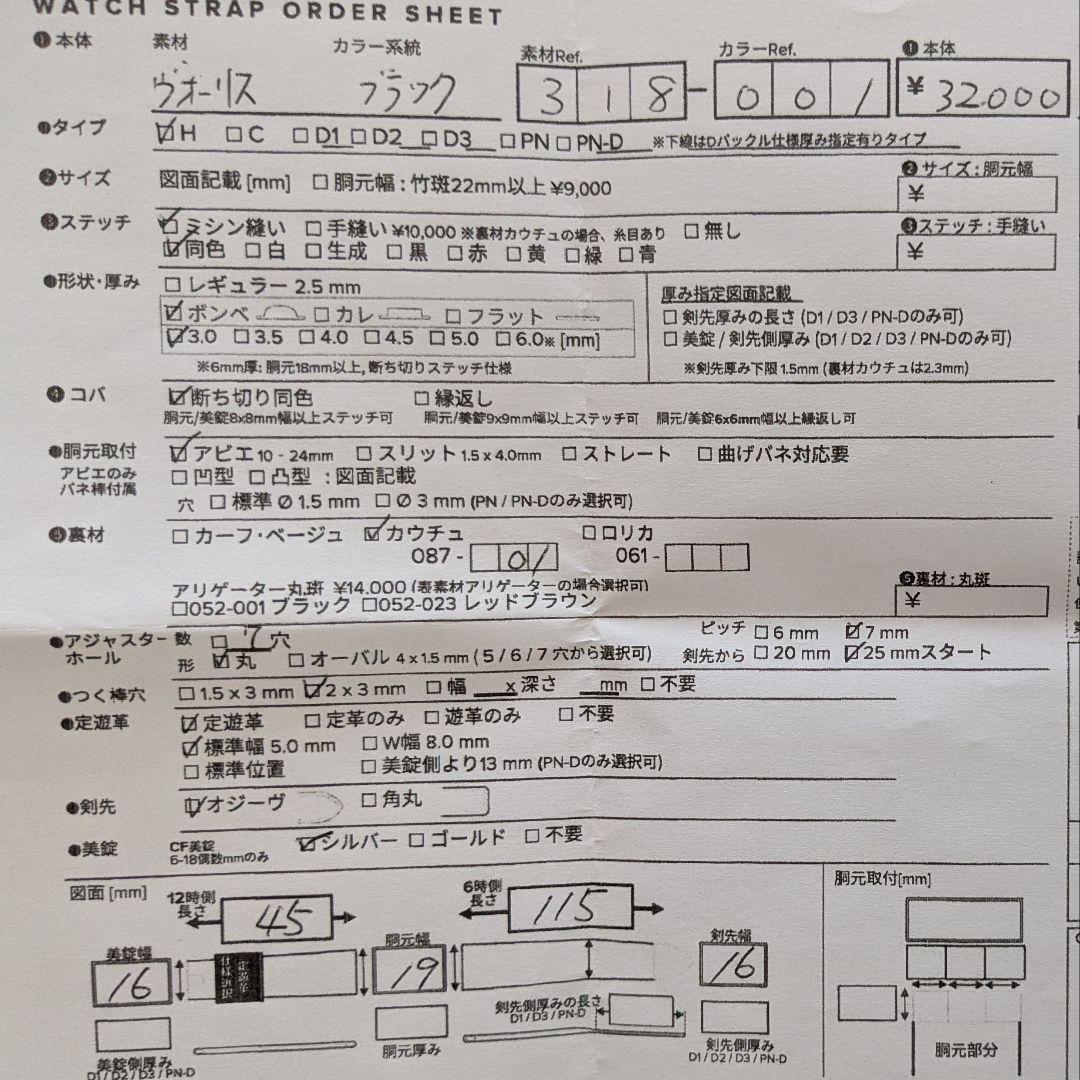 WATCH STRAP ORDER SHEET
❶本体 素材 カラー系統 素材Ref. カラーRef. ❶本体
ヴォーリス ブラック 318-001 ¥32000
タイプ ☑H ☐C ☐D1 ☐D2 ☐D3 ☐PN ☐PN-D ※下線はDバックル仕様厚み指定有りタイプ
❷サイズ 図面記載[mm] ☐胴元幅:竹斑22mm以上¥9,000 ❷サイズ:胴元幅
¥
❸ステッチ ☑ミシン縫い ☐手縫い¥10,000 ※裏材カウチュの場合、糸目あり ☐無し ❸ステッチ:手縫い
☑同色 ☐白 ☐生成 ☐黒 ☐赤 ☐黄 ☐緑 ☐青 ¥
形状・厚み ☐レギュラー2.5mm 厚み指定図面記載
☑ボンベ ☐カレ ☐フラット ☐剣先厚みの長さ(D1/D3/PN-Dのみ可)
☑3.0 ☐3.5 ☐4.0 ☐4.5 ☐5.0 ☐6.0※[mm] ☐美錠/剣先側厚み(D1/D2/D3/PN-Dのみ可)
※6mm厚:胴元18mm以上,断ち切りステッチ仕様 ※剣先厚み下限1.5mm(裏材カウチュは2.3mm)
❹コバ ☑断ち切り同色 ☐縁返し
胴元/美錠8x8mm幅以上ステッチ可 胴元/美錠9x9mm幅以上ステッチ可 胴元/美錠6x6mm幅以上縁返し可
胴元取付 ☑アビエ10-24mm ☐スリット1.5x4.0mm ☐ストレート ☐曲げバネ対応要
アビエのみ ☐凹型 ☐凸型:図面記載
バネ棒付属 穴 ☐標準Ø1.5mm ☐Ø3mm(PN/PN-Dのみ選択可)
裏材 ☐カーフ・ベージュ ☑カウチュ ☐ロリカ
087- 01 061-
アリゲーター丸斑 ¥14,000(表素材アリゲーターの場合選択可) ❺裏材:丸斑
☐052-001ブラック ☐052-023レッドブラウン ¥
アジャスター 数 ☐7穴 ピッチ ☐6mm ☑7mm
ホール 形 ☑丸 ☐オーバル4x1.5mm(5/6/7穴から選択可) 剣先から ☐20mm ☑25mmスタート
つく棒穴 ☐1.5x3mm ☑2x3mm ☐幅 x深さ mm ☐不要
定遊革 ☑定遊革 ☐定革のみ ☐遊革のみ ☐不要
☑標準幅5.0mm ☐W幅8.0mm
☐標準位置 ☐美錠側より13mm(PN-Dのみ選択可)
剣先 ☑オジーヴ ☐角丸
美錠 CF美錠 ☑シルバー ☐ゴールド ☐不要
6-18偶数mmのみ
図面[mm] 12時側長さ 45 6時側長さ 115 胴元取付[mm]
美錠幅 16 定遊革仕様選択 胴元幅 19 剣先幅 16
剣先側厚みの長さ
D1/D3/PN-D
美錠側厚み 胴元厚み 剣先側厚み 胴元部分
D1/D2/D3/PN-D D1/D2/D3/PN-D